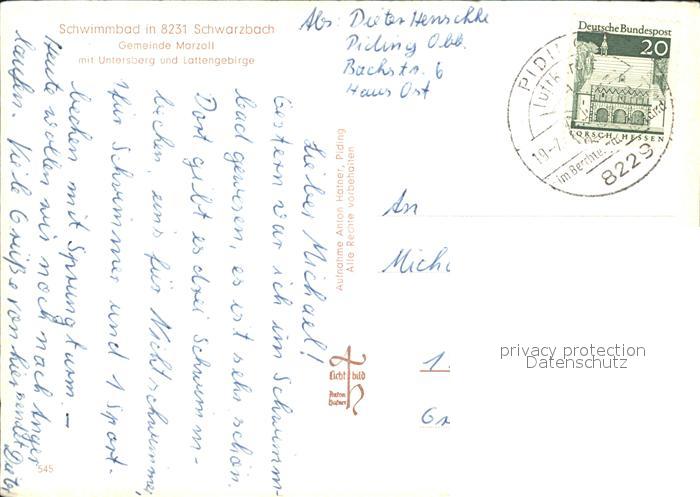 Schwimmbad in 8231 Schwarzbach
Gemeinde Marzoll
mit Untersberg und Lattengebirge
Abs: Dieter Henschke
Piding Obb.
Bachstr. 6
Haus Ost
Deutsche Bundespost
20
LORSCH/HESSEN
PIDING
Luftk
19.-7.
im Berchte
8229
Lieber Michael!
Gestern war ich im Schwimm-
bad gewesen, es ist sehr schön.
Dort gibt es drei Schwimm-
becken, eins für Nichtschwimmer,
1 für Schwimmer und 1 Sport-
becken mit Sprungturm. –
Heute wollen wir noch nach Anger
laufen. Viele Grüße von hier sendet Dieter
Aufnahme Anton Hafner, Piding
Alle Rechte vorbehalten
Licht bild
Anton
Hafner
An
Mich
1.
privacy protection
Datenschutz
545